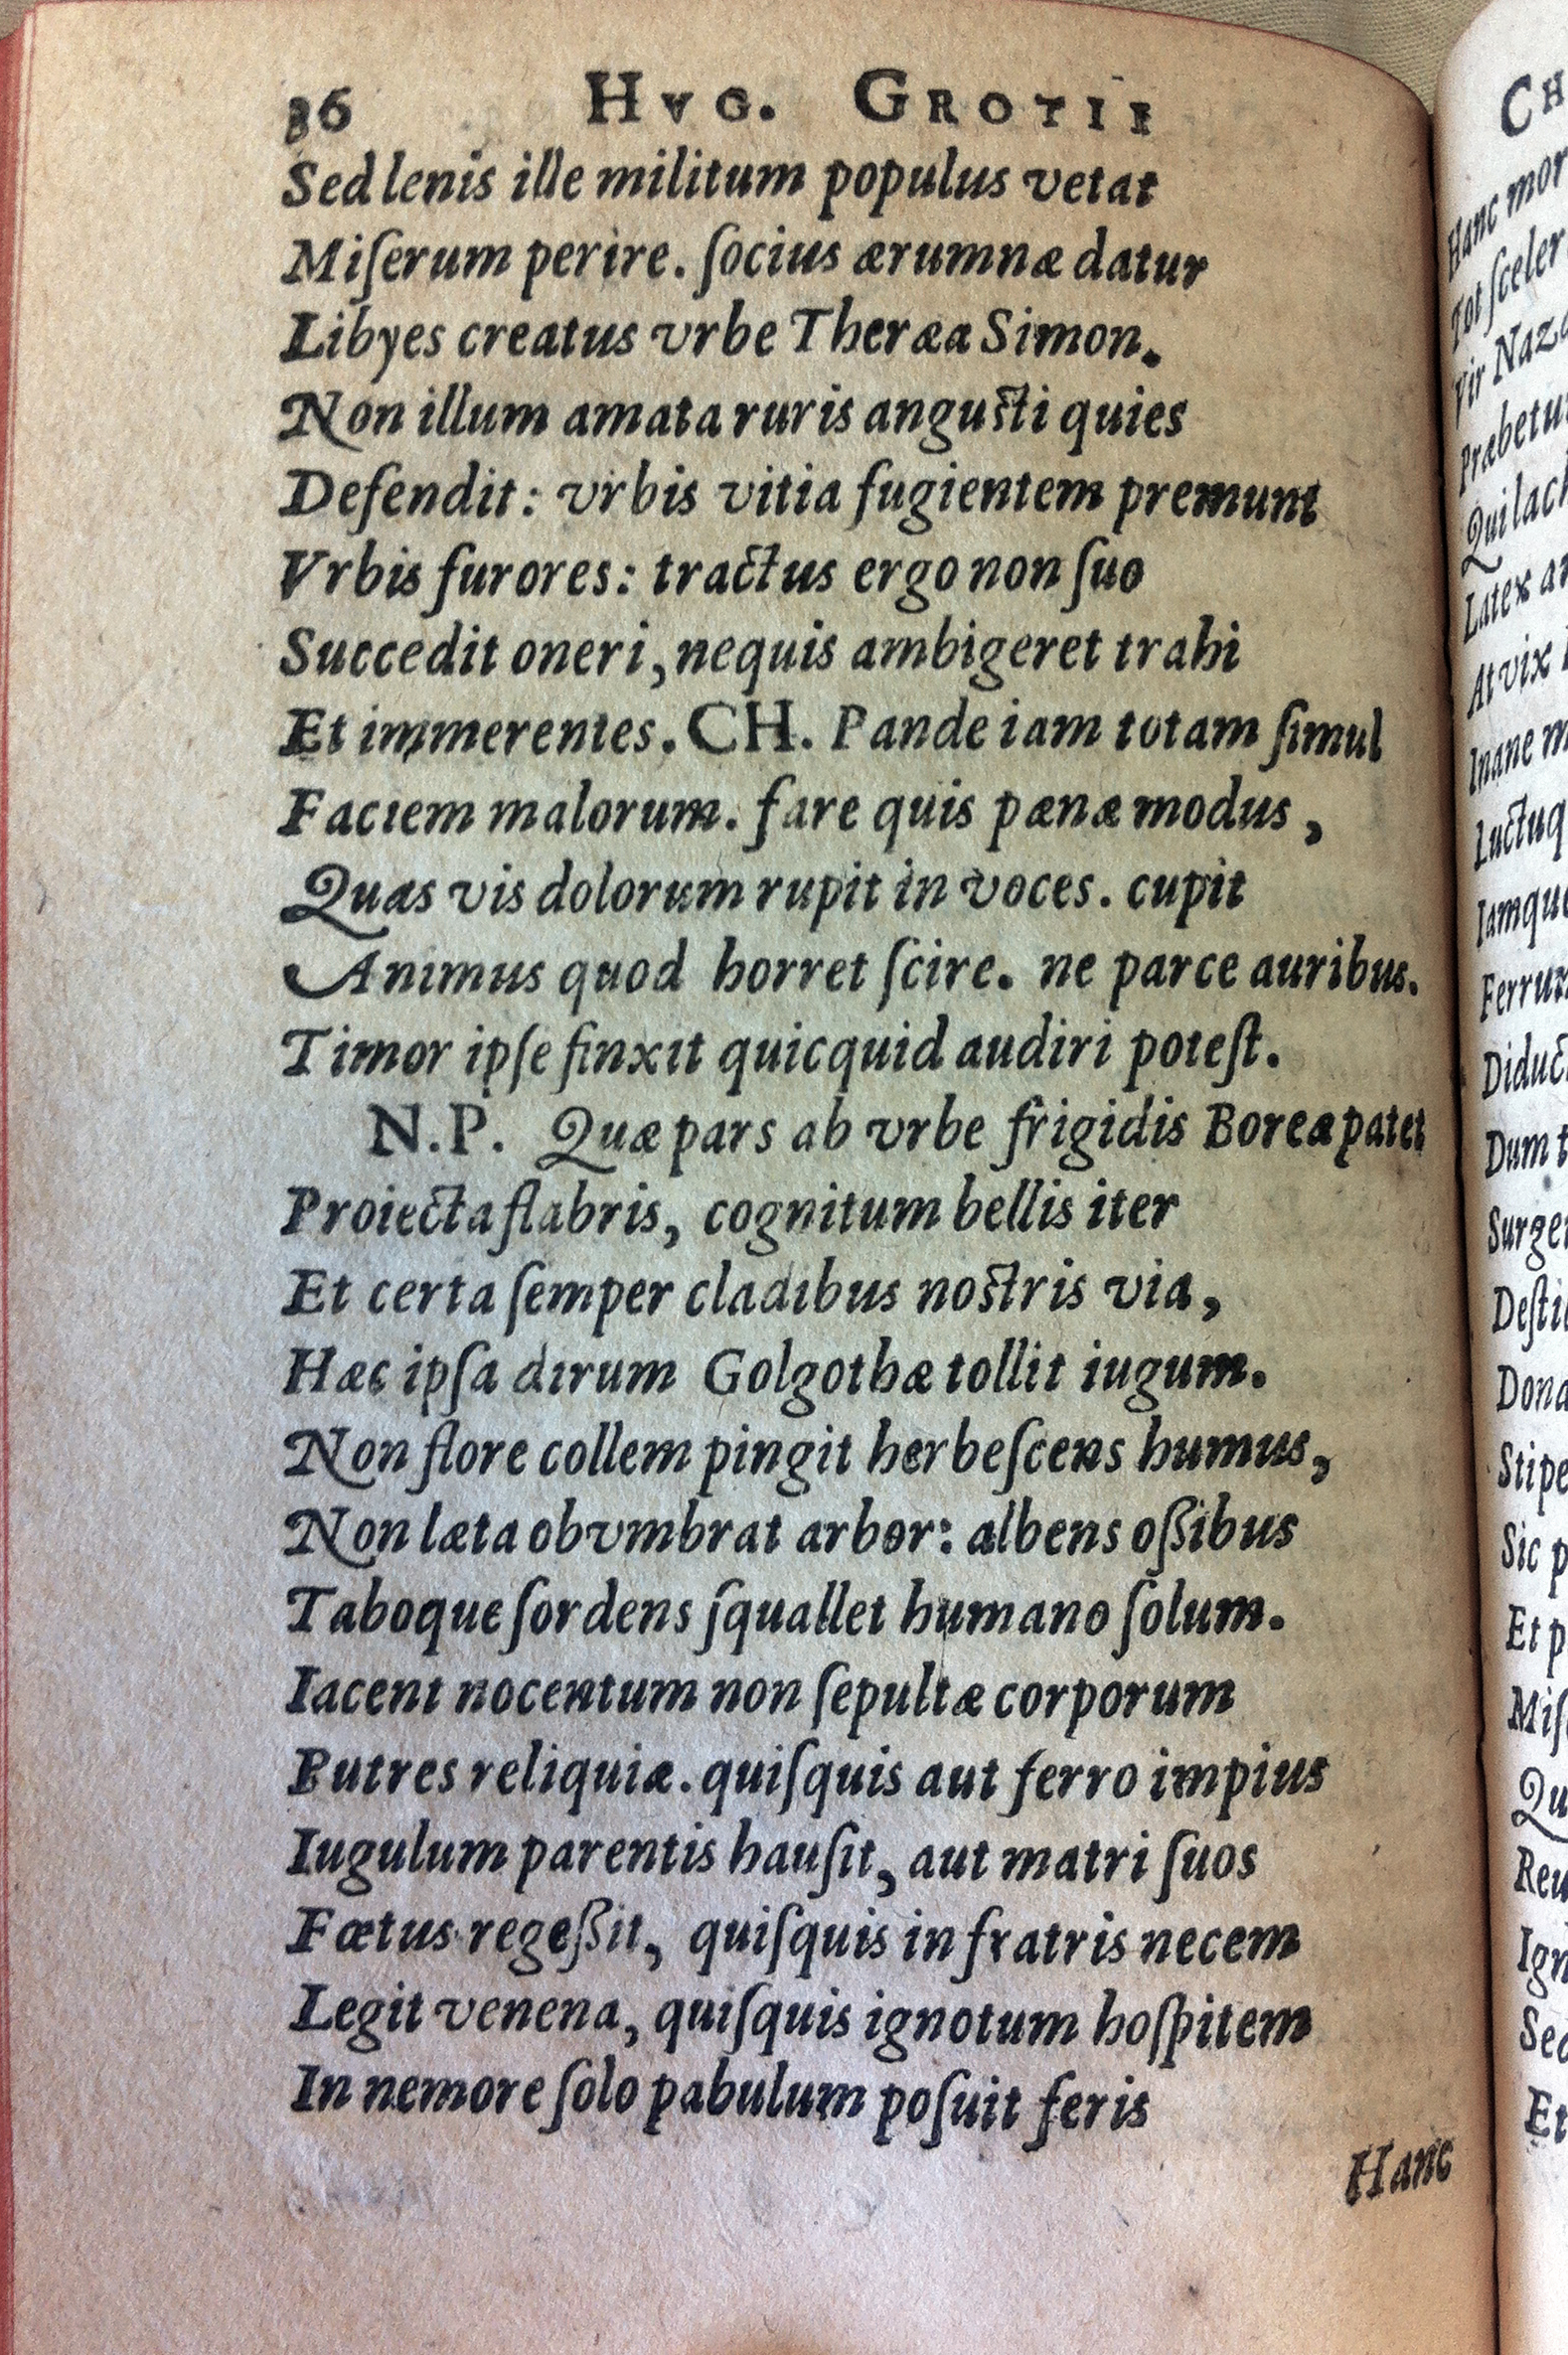 36 HVG. GROTII
Sed lenis ille militum populus vetat
Miſerum perire. ſocius ærumnæ datur
Libyes creatus vrbe Theræa Simon.
Non illum amata ruris anguſti quies
Defendit: vrbis vitia fugientem premunt
Vrbis furores: tractus ergo non ſuo
Succedit oneri, nequis ambigeret trahi
Et immerentes. CH. Pande iam totam ſimul
Faciem malorum. fare quis pœnæ modus,
Quas vis dolorum rupit in voces. cupit
Animus quod horret ſcire. ne parce auribus.
Timor ipſe finxit quicquid audiri poteſt.
N.P. Quæ pars ab vrbe frigidis Boreæ patet
Proiecta flabris, cognitum bellis iter
Et certa ſemper cladibus noſtris via,
Hæc ipſa dirum Golgothæ tollit iugum.
Non flore collem pingit herbeſcens humus,
Non læta obvmbrat arbor: albens oßibus
Taboque ſordens ſquallet humano ſolum.
Iacent nocentum non ſepultæ corporum
Putres reliquiæ. quiſquis aut ferro impius
Iugulum parentis hauſit, aut matri ſuos
Fœtus regeßit, quiſquis in fratris necem
Legit venena, quiſquis ignotum hoſpitem
In nemore ſolo pabulum poſuit feris
Hanc
CH
Hanc
Tot
Vir
Præbetu
Qui
Latex
At vix
Inane
Luctuq
Iamque
Dum
Sic
Et
Et